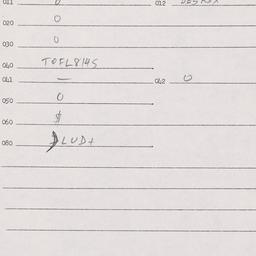 011 0 012
020 0
030 0
040 TOFL8145
041 — 042 0
050 0
060 $
080 LUD+